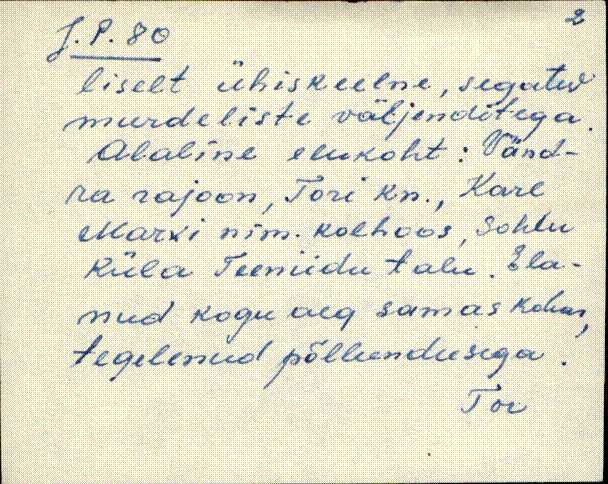 2
J. P. 80
liselt ühiskeelne, segatud
murdeliste väljenditega.
Alaline elukoht: Vänd-
ra rajoon, Tori kn., Karl
Marxi nim. kolhoos,
küla talu. Ela-
nud kogu aeg samas kohas,
tegelenud põllundusega.
Tor